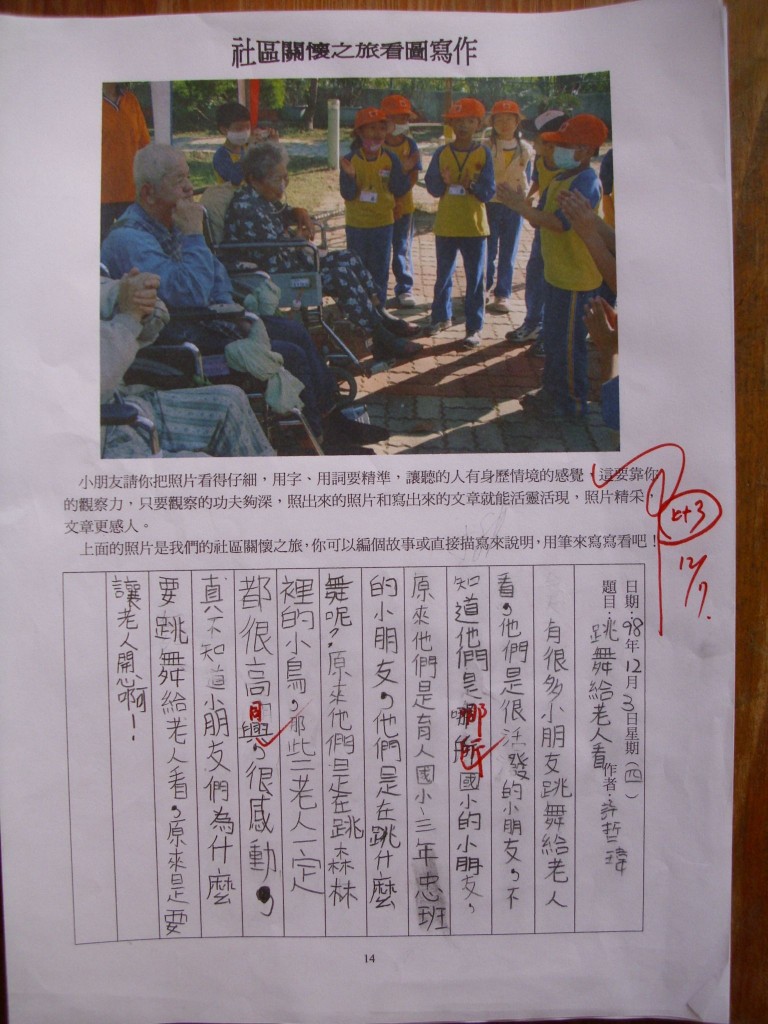 社區關懷之旅看圖寫作
小朋友請你把照片看得仔細，用字、用詞要精準，讓聽的人有身歷情境的感覺，這要靠你
的觀察力，只要觀察的功夫夠深，照出來的照片和寫出來的文章就能活靈活現，照片精采，
文章更感人。
上面的照片是我們的社區關懷之旅，你可以編個故事或直接描寫來說明，用筆來寫寫看吧！
日期：98年12月3日星期（四）
題目：跳舞給老人看 作者：許哲瑋
有很多小朋友跳舞給老人
看，他們是很活發的小朋友，不
知道他們是哪所國小的小朋友，
原來他們是育人國小三年忠班
的小朋友，他們是在跳什麼
舞呢？原來他們是在跳森林
裡的小鳥，那些老人一定
都很高興，很感動，
真不知道小朋友們為什麼
要跳舞給老人看，原來是要
讓老人開心啊！
+3
12/7
14